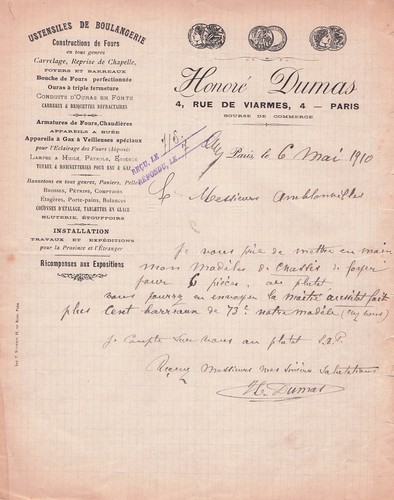 USTENSILES DE BOULANGERIE
Constructions de Fours
en tout genres
Carrelage, Reprise de Chapelle,
FOYERS ET BARREAUX
Bouche de Fours perfectionnée
Ouras à triple fermeture
CONDUITS D'OURAS EN FONTE
CARREAUX & BRIQUETTES RÉFRACTAIRES
Armatures de Fours, Chaudières
APPAREILS A BUÉE
Appareils à Gaz à Veilleuses spéciaux
pour l'Eclairage des Fours (déposés)
LAMPES A HUILE, PÉTROLE, ESSENCE
TUYAUX & ROBINETTERIES POUR EAU & GAZ
Bannetons en tous genres, Paniers, Pelles
BROSSES, PÉTRINS, COMPTOIRS
Etagères, Porte-pains, Balances
COUPES D'ÉTALAGE, TABLETTES EN GLACE
BLUTERIE, ÉTOUFFOIRS
INSTALLATION
TRAVAUX ET EXPÉDITIONS
pour la Province et l'Étranger
Récompenses aux Expositions
Honoré Dumas
4, RUE DE VIARMES, 4 — PARIS
BOURSE DE COMMERCE
REÇU, LE
RÉPONDU, LE
Paris le 6 Mai 1910
Messieurs
Je vous prie de mettre en main
mon modèles de Chassis de foyer
pour 6 pièces, au plutôt.
vous pourrez en envoyer la moitié aussitôt fait
plus cent barreaux de 73c notre modèle
je compte sur vous au plutôt S.V.P.
Recevez Messieurs mes sincères Salutations
H. Dumas